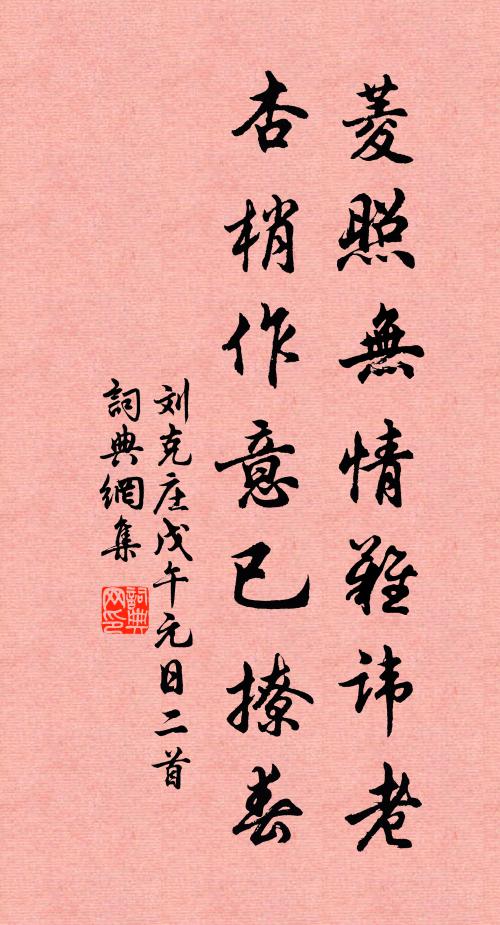 菱照無情難諱老
杏梢作意已撩春
刘克庄戊午元日二首
詞典網集
詞典网印